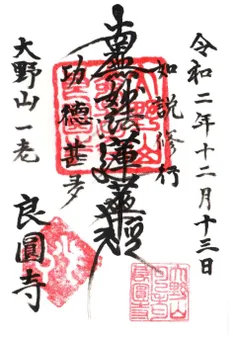 令和二年十二月十三日
如説修行
南無妙法蓮華経
功徳甚多
大野山一老
良圓寺
大野山
良圓寺